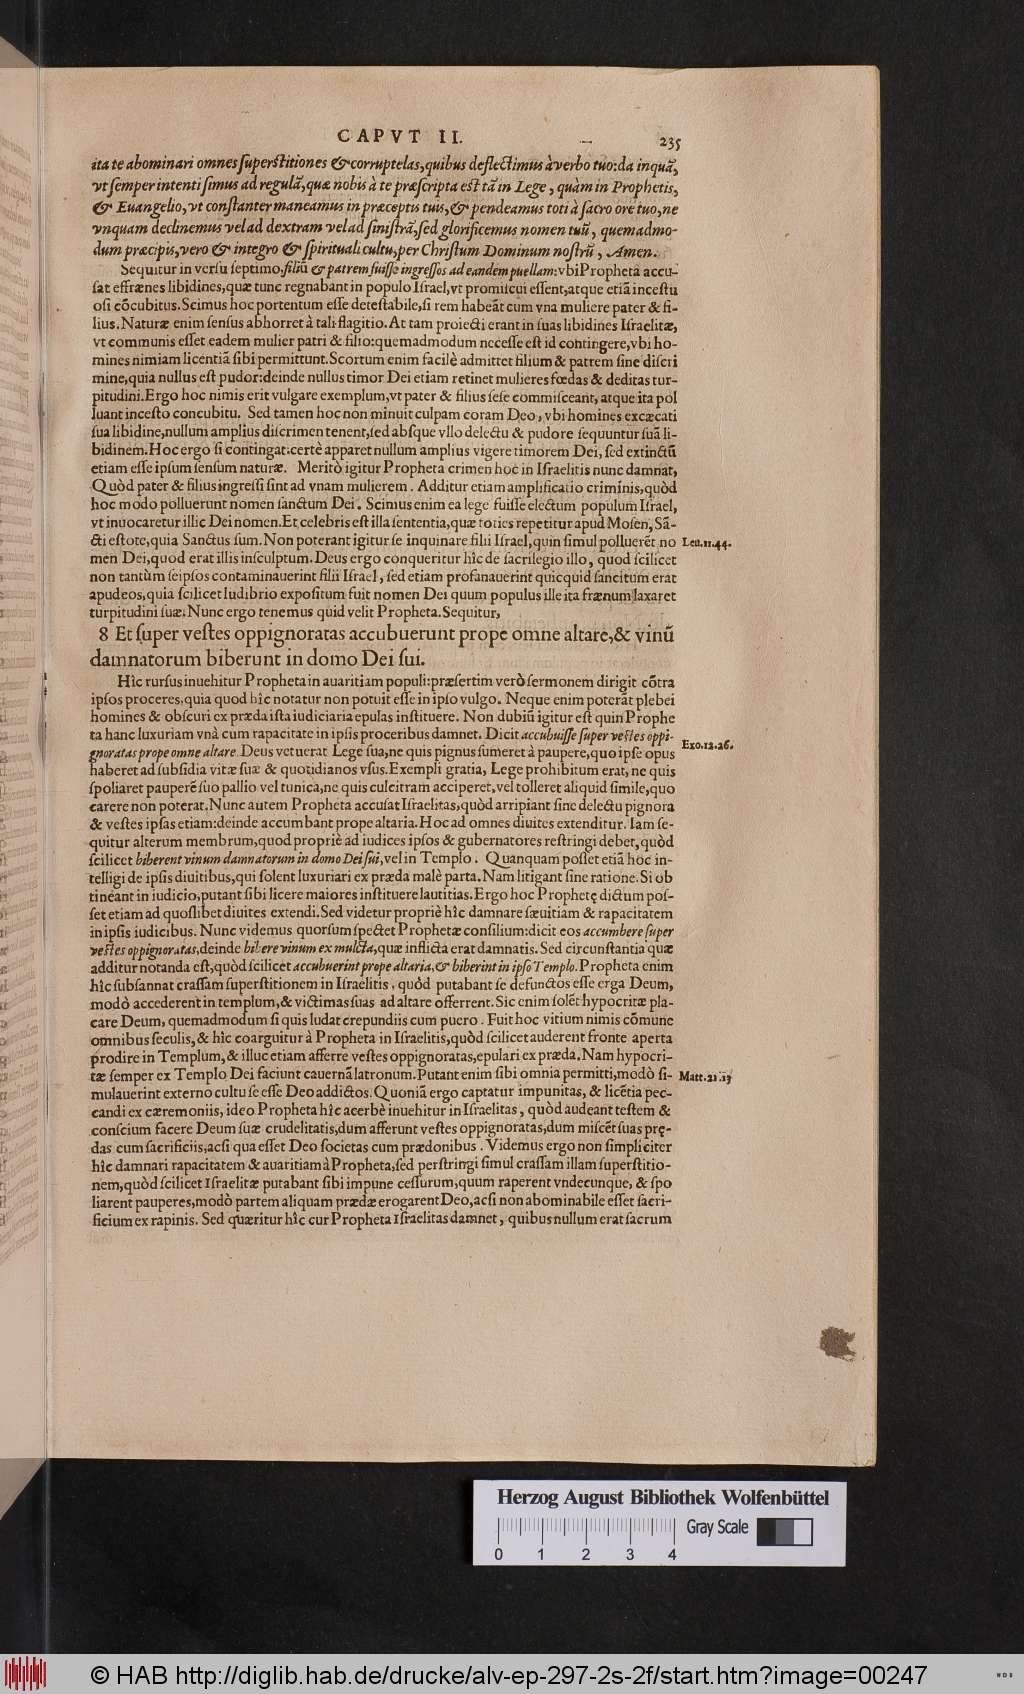 CAPVT II. 235
ita te abominari omnes superstitiones & corruptelas, quibus deflectimus à verbo tuo: da inquã,
vt semper intenti simus ad regulã, quæ nobis à te præscripta est tã in Lege, quàm in Prophetis,
& Euangelio, vt constanter maneamus in præceptis tuis, & pendeamus toti à sacro ore tuo, ne
vnquam declinemus vel ad dextram vel ad sinistrã, sed glorificemus nomen tuũ, quemadmo-
dum præcipis, vero & integro & spirituali cultu, per Christum Dominum nostrũ, Amen.
Sequitur in versu septimo, filiũ & patrem fuisse ingressos ad eandem puellam: vbi Propheta accu-
sat effrænes libidines, quæ tunc regnabant in populo Israel, vt promiscui essent, atque etiã incestu
osi cõcubitus. Scimus hoc portentum esse detestabile, si rem habeãt cum vna muliere pater & fi-
lius. Naturæ enim sensus abhorret à tali flagitio. At tam proiecti erant in suas libidines Israelitæ,
vt communis esset eadem mulier patri & filio: quemadmodum necesse est id contingere, vbi ho-
mines nimiam licentiã sibi permittunt. Scortum enim facilè admittet filium & patrem sine discri
mine, quia nullus est pudor: deinde nullus timor Dei etiam retinet mulieres fœdas & deditas tur-
pitudini. Ergo hoc nimis erit vulgare exemplum, vt pater & filius sese commisceant, atque ita pol
luant incesto concubitu. Sed tamen hoc non minuit culpam coram Deo, vbi homines excæcati
sua libidine, nullum amplius discrimen tenent, sed absque vllo delectu & pudore sequuntur suã li-
bidinem. Hoc ergo si contingat: certè apparet nullum amplius vigere timorem Dei, sed extinctũ
etiam esse ipsum sensum naturæ. Meritò igitur Propheta crimen hoc in Israelitis nunc damnat,
Quòd pater & filius ingressi sint ad vnam mulierem. Additur etiam amplificatio criminis, quòd
hoc modo polluerunt nomen sanctum Dei. Scimus enim ea lege fuisse electum populum Israel,
vt inuocaretur illic Dei nomen. Et celebris est illa sententia, quæ toties repetitur apud Mosen, Sã-
cti estote, quia Sanctus sum. Non poterant igitur se inquinare filii Israel, quin simul polluerẽt no Leu.11.44.
men Dei, quod erat illis insculptum. Deus ergo conqueritur hîc de sacrilegio illo, quod scilicet
non tantùm seipsos contaminauerint filii Israel, sed etiam profanauerint quicquid sancitum erat
apud eos, quia scilicet ludibrio expositum fuit nomen Dei quum populus ille ita frænum laxaret
turpitudini suæ. Nunc ergo tenemus quid velit Propheta. Sequitur,
8 Et super vestes oppignoratas accubuerunt prope omne altare, & vinũ
damnatorum biberunt in domo Dei sui.
Hîc rursus inuehitur Propheta in auaritiam populi: præsertim verò sermonem dirigit cõtra
ipsos proceres, quia quod hîc notatur non potuit esse in ipso vulgo. Neque enim poterãt plebei
homines & obscuri ex præda ista iudiciaria epulas instituere. Non dubiũ igitur est quin Prophe
ta hanc luxuriam vnà cum rapacitate in ipsis proceribus damnet. Dicit accubuisse super vestes oppi-
gnoratas prope omne altare. Deus vetuerat Lege sua, ne quis pignus sumeret à paupere, quo ipse opus Exo.12.26.
haberet ad subsidia vitæ suæ & quotidianos vsus. Exempli gratia, Lege prohibitum erat, ne quis
spoliaret pauperẽ suo pallio vel tunica, ne quis culcitram acciperet, vel tolleret aliquid simile, quo
carere non poterat. Nunc autem Propheta accusat Israelitas, quòd arripiant sine delectu pignora
& vestes ipsas etiam: deinde accumbant prope altaria. Hoc ad omnes diuites extenditur. Iam se-
quitur alterum membrum, quod propriè ad iudices ipsos & gubernatores restringi debet, quòd
scilicet biberent vinum damnatorum in domo Dei sui, vel in Templo. Quanquam posset etiã hoc in-
telligi de ipsis diuitibus, qui solent luxuriari ex præda malè parta. Nam litigant sine ratione. Si ob
tineant in iudicio, putant sibi licere maiores instituere lautitias. Ergo hoc Prophetę dictum pos-
set etiam ad quoslibet diuites extendi. Sed videtur propriè hîc damnare sæuitiam & rapacitatem
in ipsis iudicibus. Nunc videmus quorsum spectet Prophetæ consilium: dicit eos accumbere super
vestes oppignoratas, deinde bibere vinum ex mulcta, quæ inflicta erat damnatis. Sed circunstantia quæ
additur notanda est, quòd scilicet accubuerint prope altaria, & biberint in ipso Templo. Propheta enim
hîc subsannat crassam superstitionem in Israelitis, quòd putabant se defunctos esse erga Deum,
modò accederent in templum, & victimas suas ad altare offerrent. Sic enim solẽt hypocritæ pla-
care Deum, quemadmodum si quis ludat crepundiis cum puero. Fuit hoc vitium nimis cõmune
omnibus seculis, & hîc coarguitur à Propheta in Israelitis, quòd scilicet auderent fronte aperta
prodire in Templum, & illuc etiam afferre vestes oppignoratas, epulari ex præda. Nam hypocri-
tæ semper ex Templo Dei faciunt cauernã latronum. Putant enim sibi omnia permitti, modò si- Matt.21.13
mulauerint externo cultu se esse Deo addictos. Quoniã ergo captatur impunitas, & licẽtia pec-
candi ex cæremoniis, ideo Propheta hîc acerbè inuehitur in Israelitas, quòd audeant testem &
conscium facere Deum suæ crudelitatis, dum afferunt vestes oppignoratas, dum miscẽt suas pręe-
das cum sacrificiis, acsi qua esset Deo societas cum prædonibus. Videmus ergo non simpliciter
hîc damnari rapacitatem & auaritiam à Propheta, sed perstringi simul crassam illam superstitio-
nem, quòd scilicet Israelitæ putabant sibi impune cessurum, quum raperent vndecunque, & spo
liarent pauperes, modò partem aliquam prædæ erogarent Deo, acsi non abominabile esset sacri-
ficium ex rapinis. Sed quæritur hîc cur Propheta Israelitas damnet, quibus nullum erat sacrum
Herzog August Bibliothek Wolfenbüttel
Gray Scale
0 1 2 3 4
© HAB http://diglib.hab.de/drucke/alv-ep-297-2s-2f/start.htm?image=00247